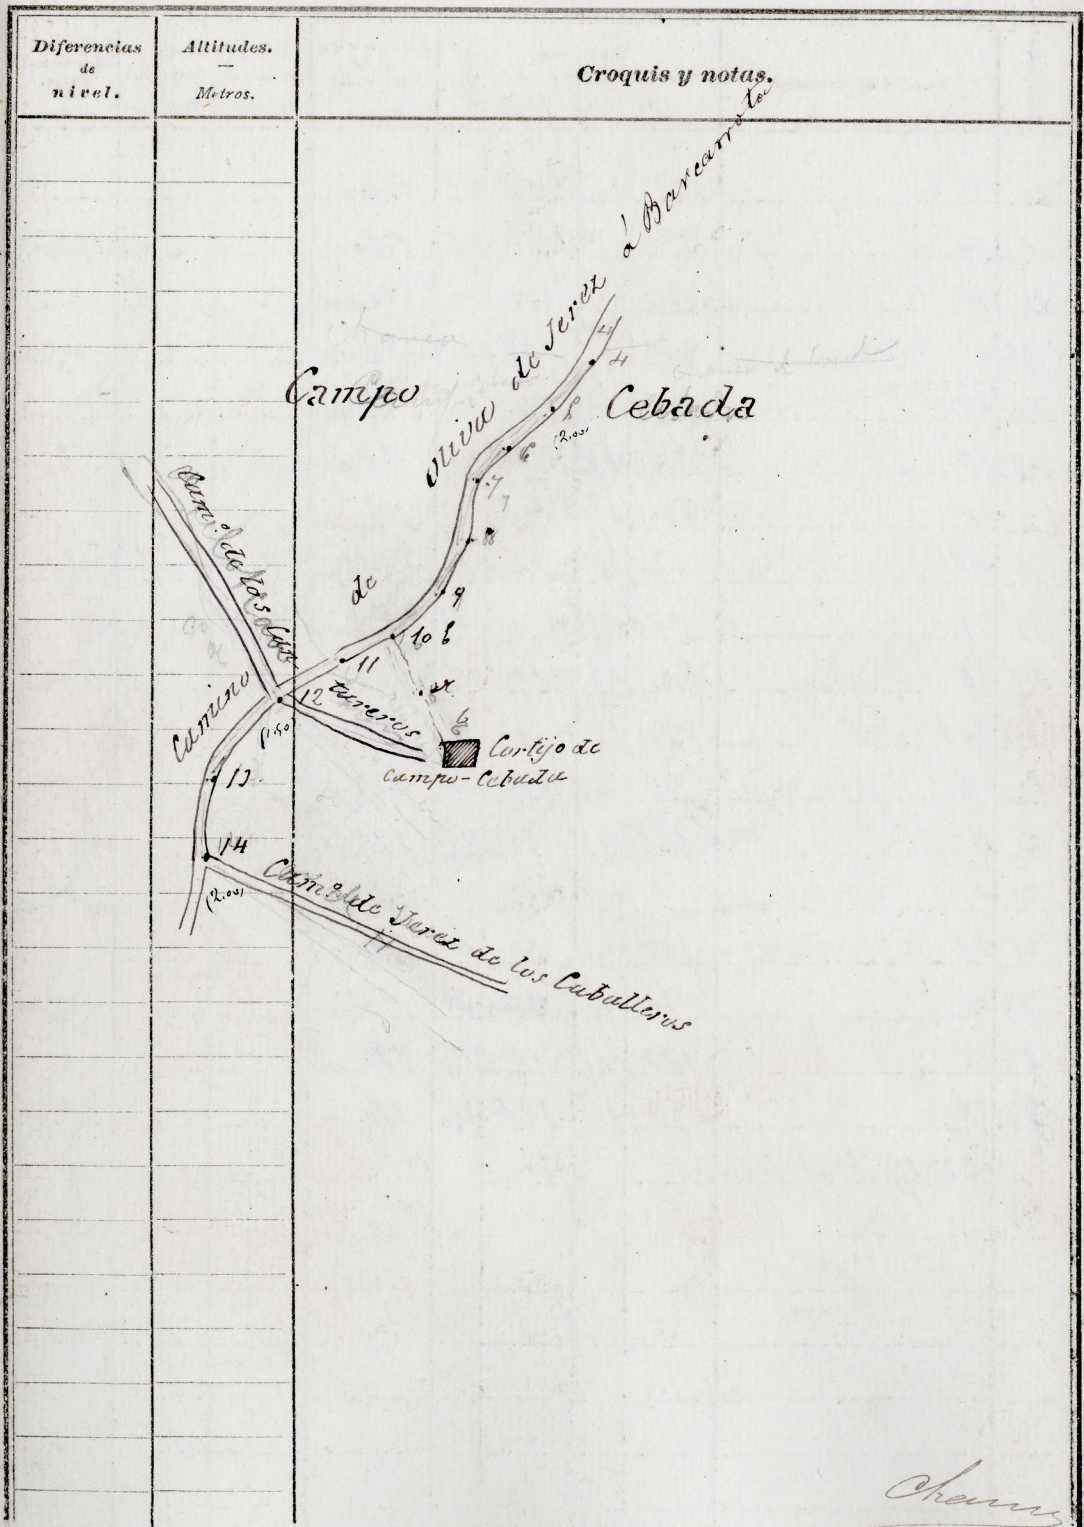 Diferencias
de
nivel.
Altitudes.
Metros.
Croquis y notas.
Camino de Oliva de Jerez á Barcarrota
Campo Cebada
4
4
5
(2.00)
6
7
7
8
9
10 b
11
a
12
(1.50)
Cam.º de los Cos
tureros
b
Cortijo de
Campo-Cebada
13
14
(2.00)
Cam.º de Jerez de los Caballeros